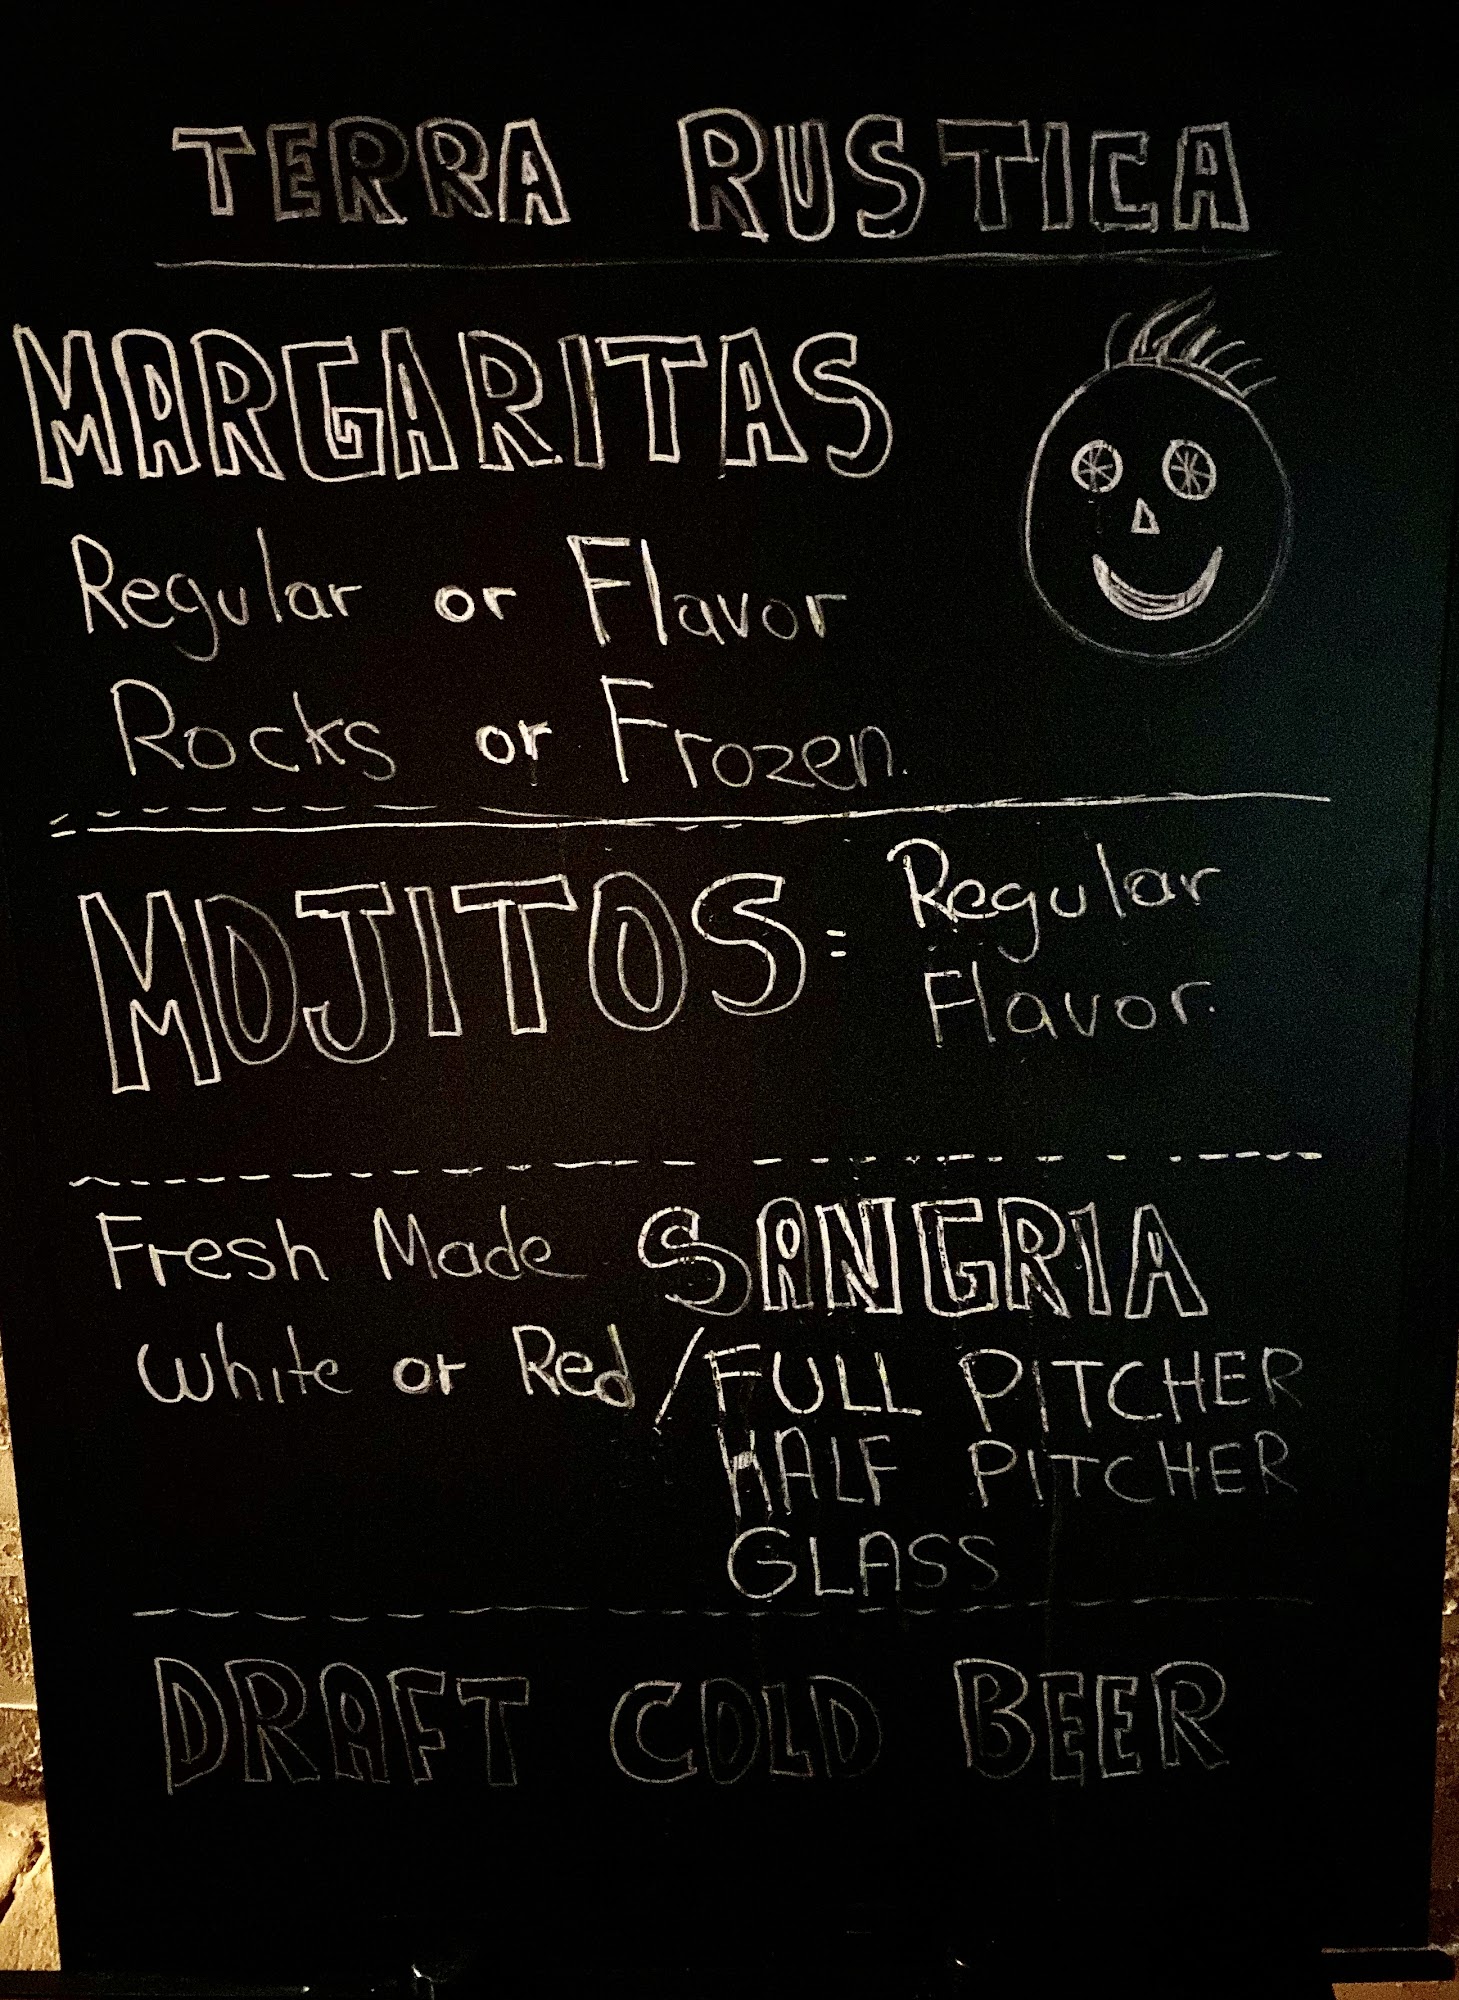 TERRA RUSTICA
MARGARITAS
Regular or Flavor
Rocks or Frozen.
MOJITOS = Regular
Flavor.
Fresh Made SANGRIA
White or Red / FULL PITCHER
HALF PITCHER
GLASS
DRAFT COLD BEER